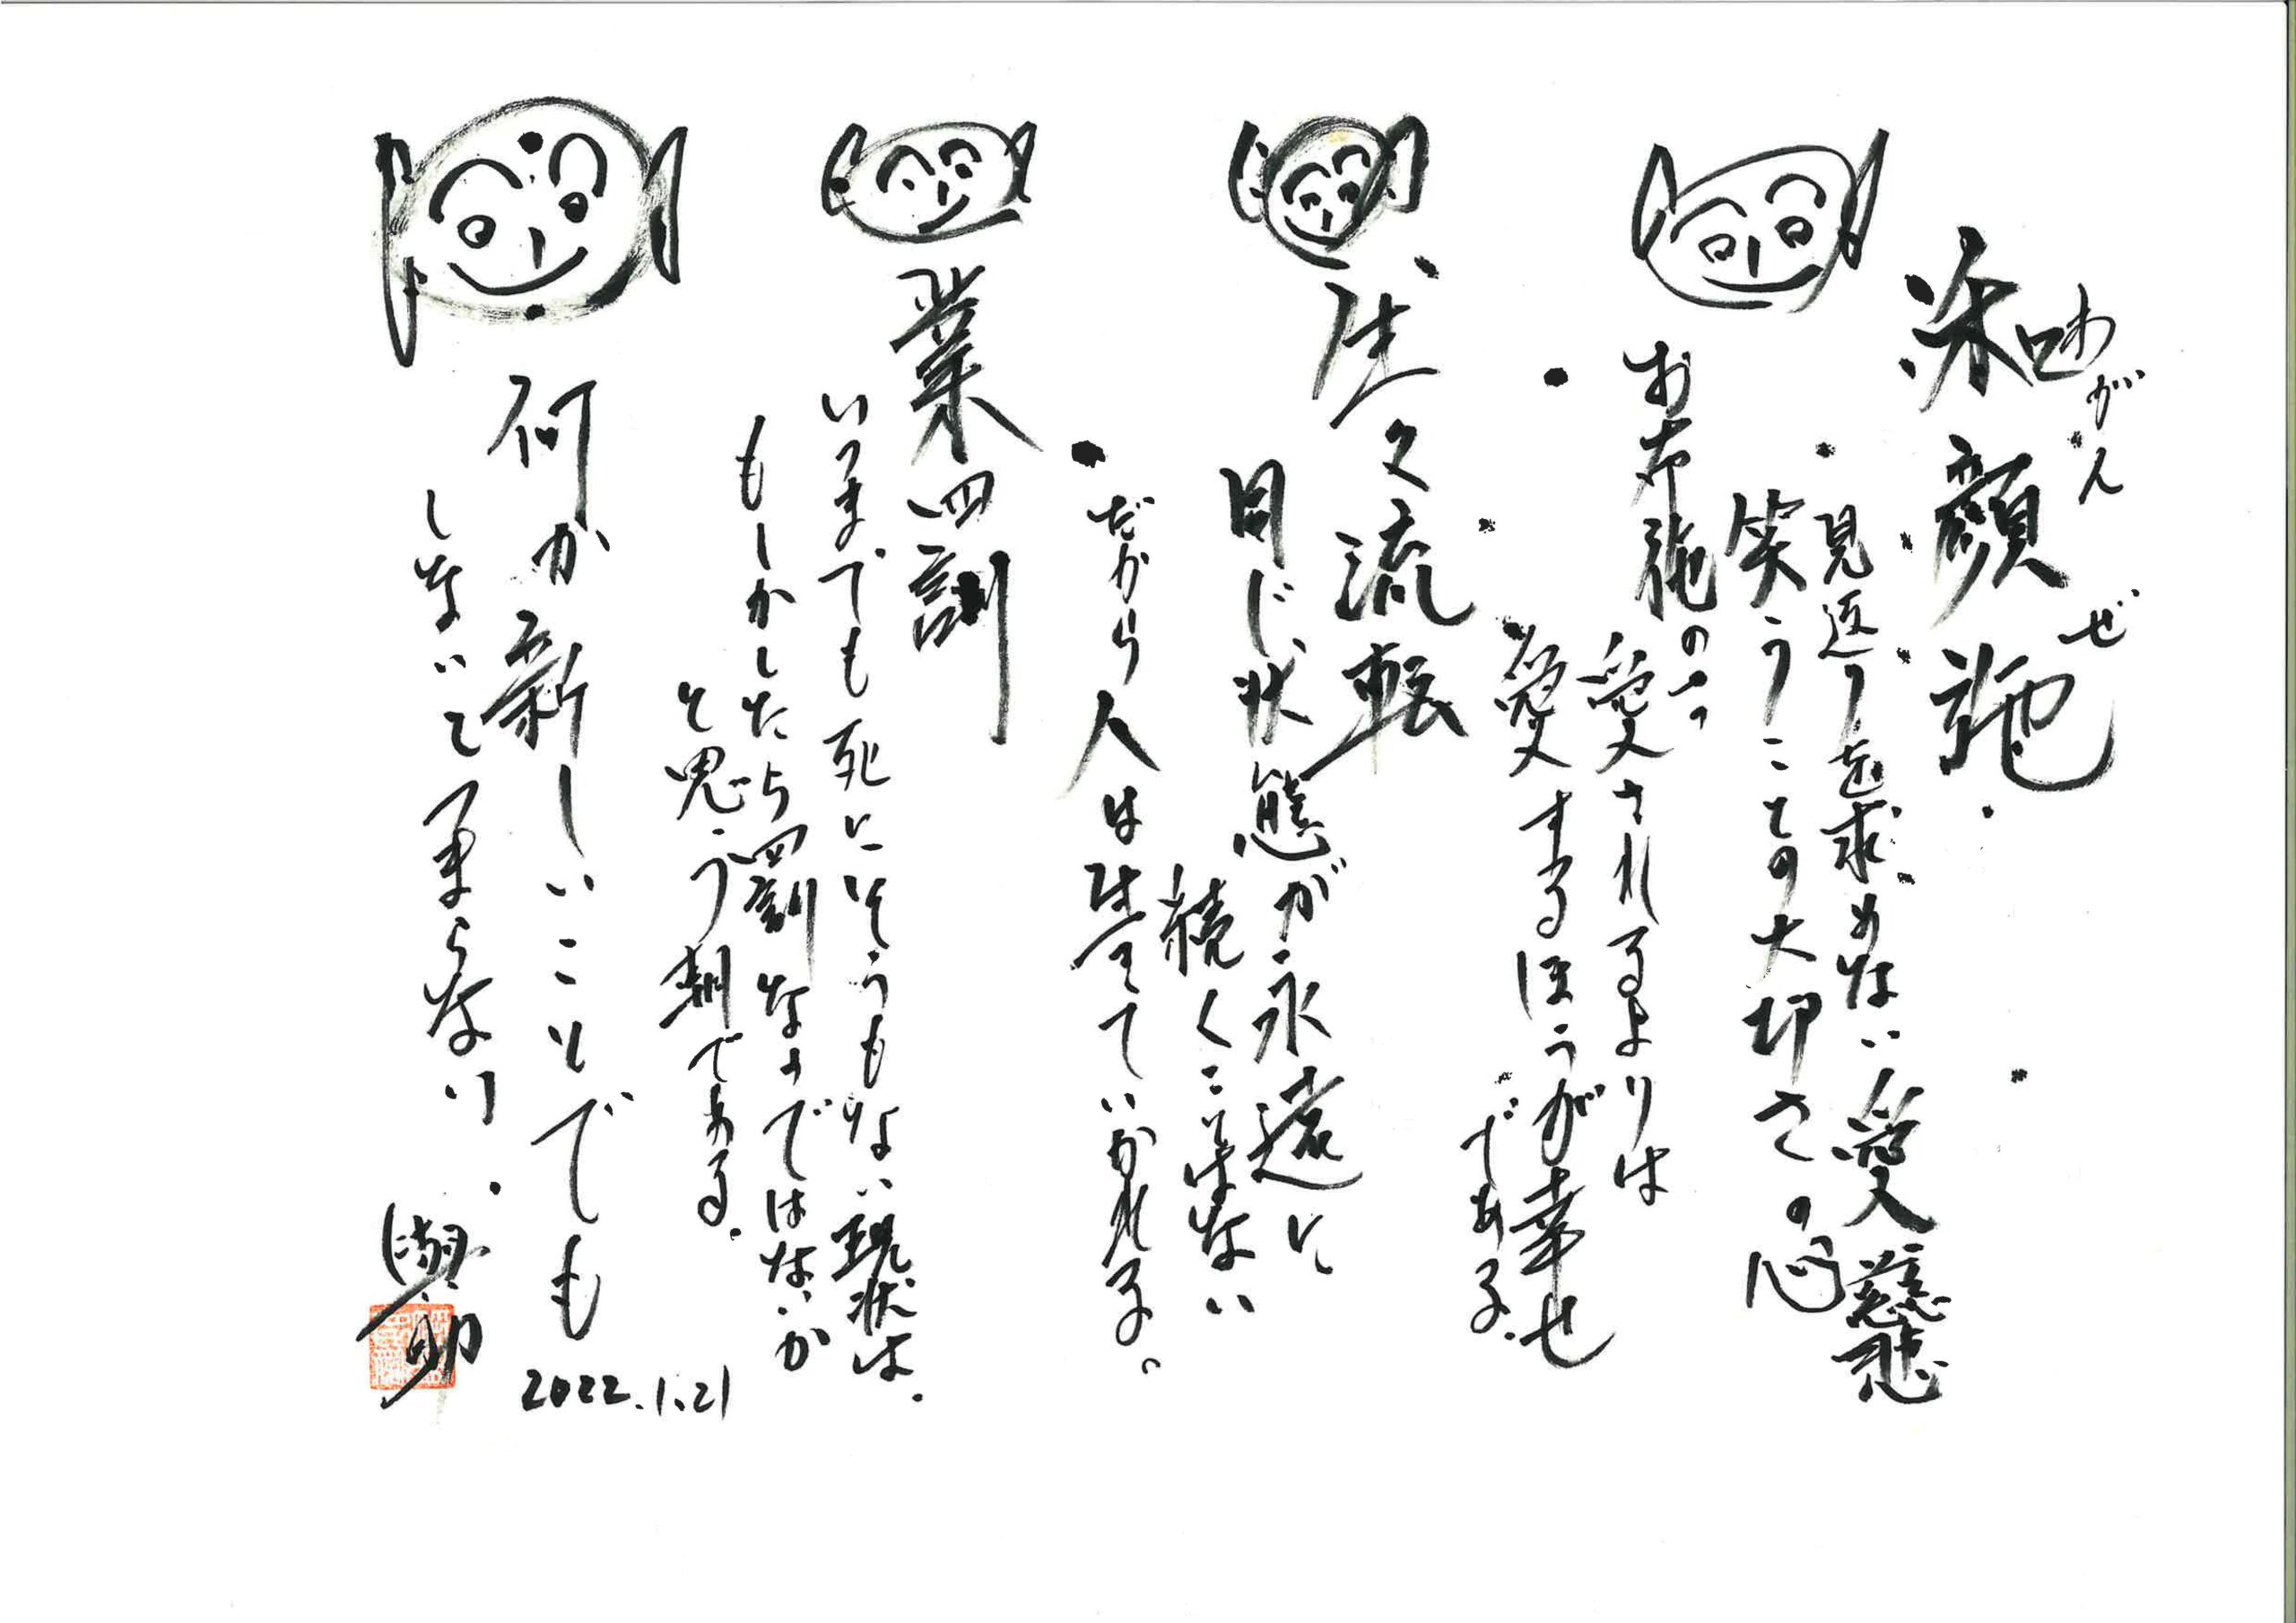 和顔施
わがんぜ
見返りを求めない愛慈悲
笑うことの大切さの心
お布施の一つ
愛されるよりは
愛するほうが幸せ
である.
生々流転
同じ状態が永遠に
続くことはない
だから人は生きていかれる。
業四訓
いつまでも死にそうもない現状は.
もしかしたら罰なのではないか
と思う朝である.
何か新しいことでも
しないとてまらない.
2022.1.21